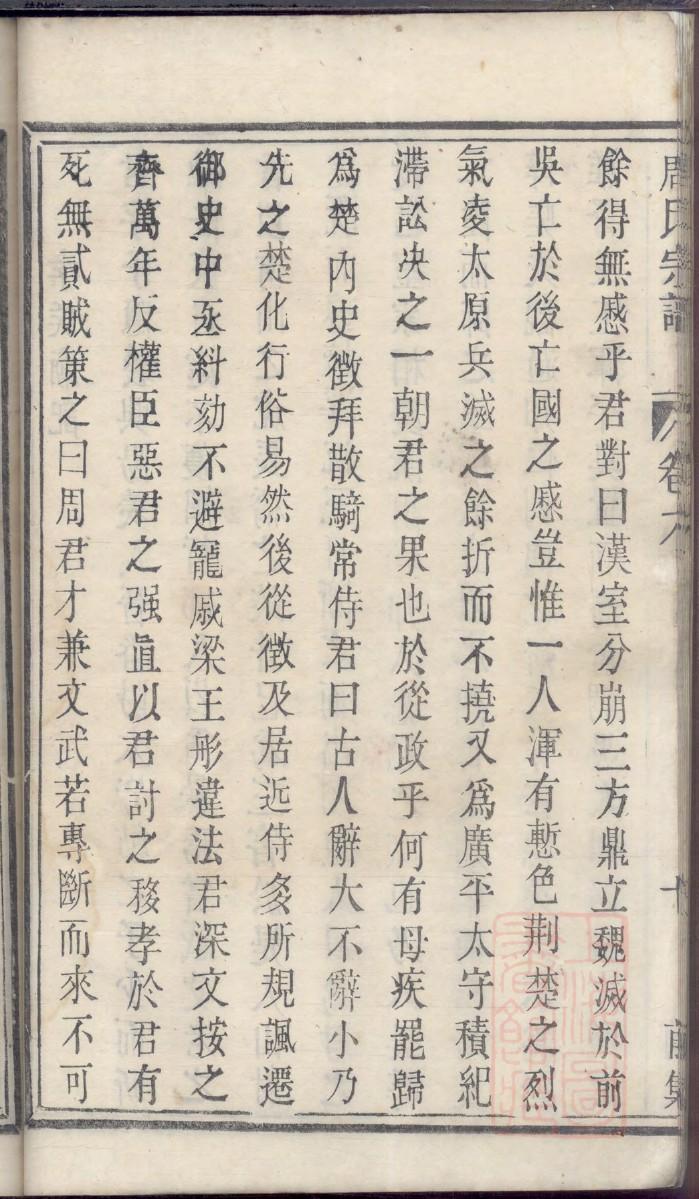 周氏宗譜 卷六 十 前集
餘得無慼乎君對曰漢室分崩三方鼎立魏滅於前
吳亡於後亡國之慼豈惟一人渾有慙色荆楚之烈
氣凌太原兵滅之餘折而不撓又爲廣平太守積紀
滯訟决之一朝君之果也於從政乎何有母疾罷歸
爲楚内史徵拜散騎常侍君曰古人辭大不辭小乃
先之楚化行俗易然後從徵及居近侍多所規諷遷
御史中丞糾劾不避寵戚梁王形違法君深文按之
齊萬年反權臣惡君之强直以君討之移孝於君有
死無貳賊策之曰周君才兼文武若專斷而來不可